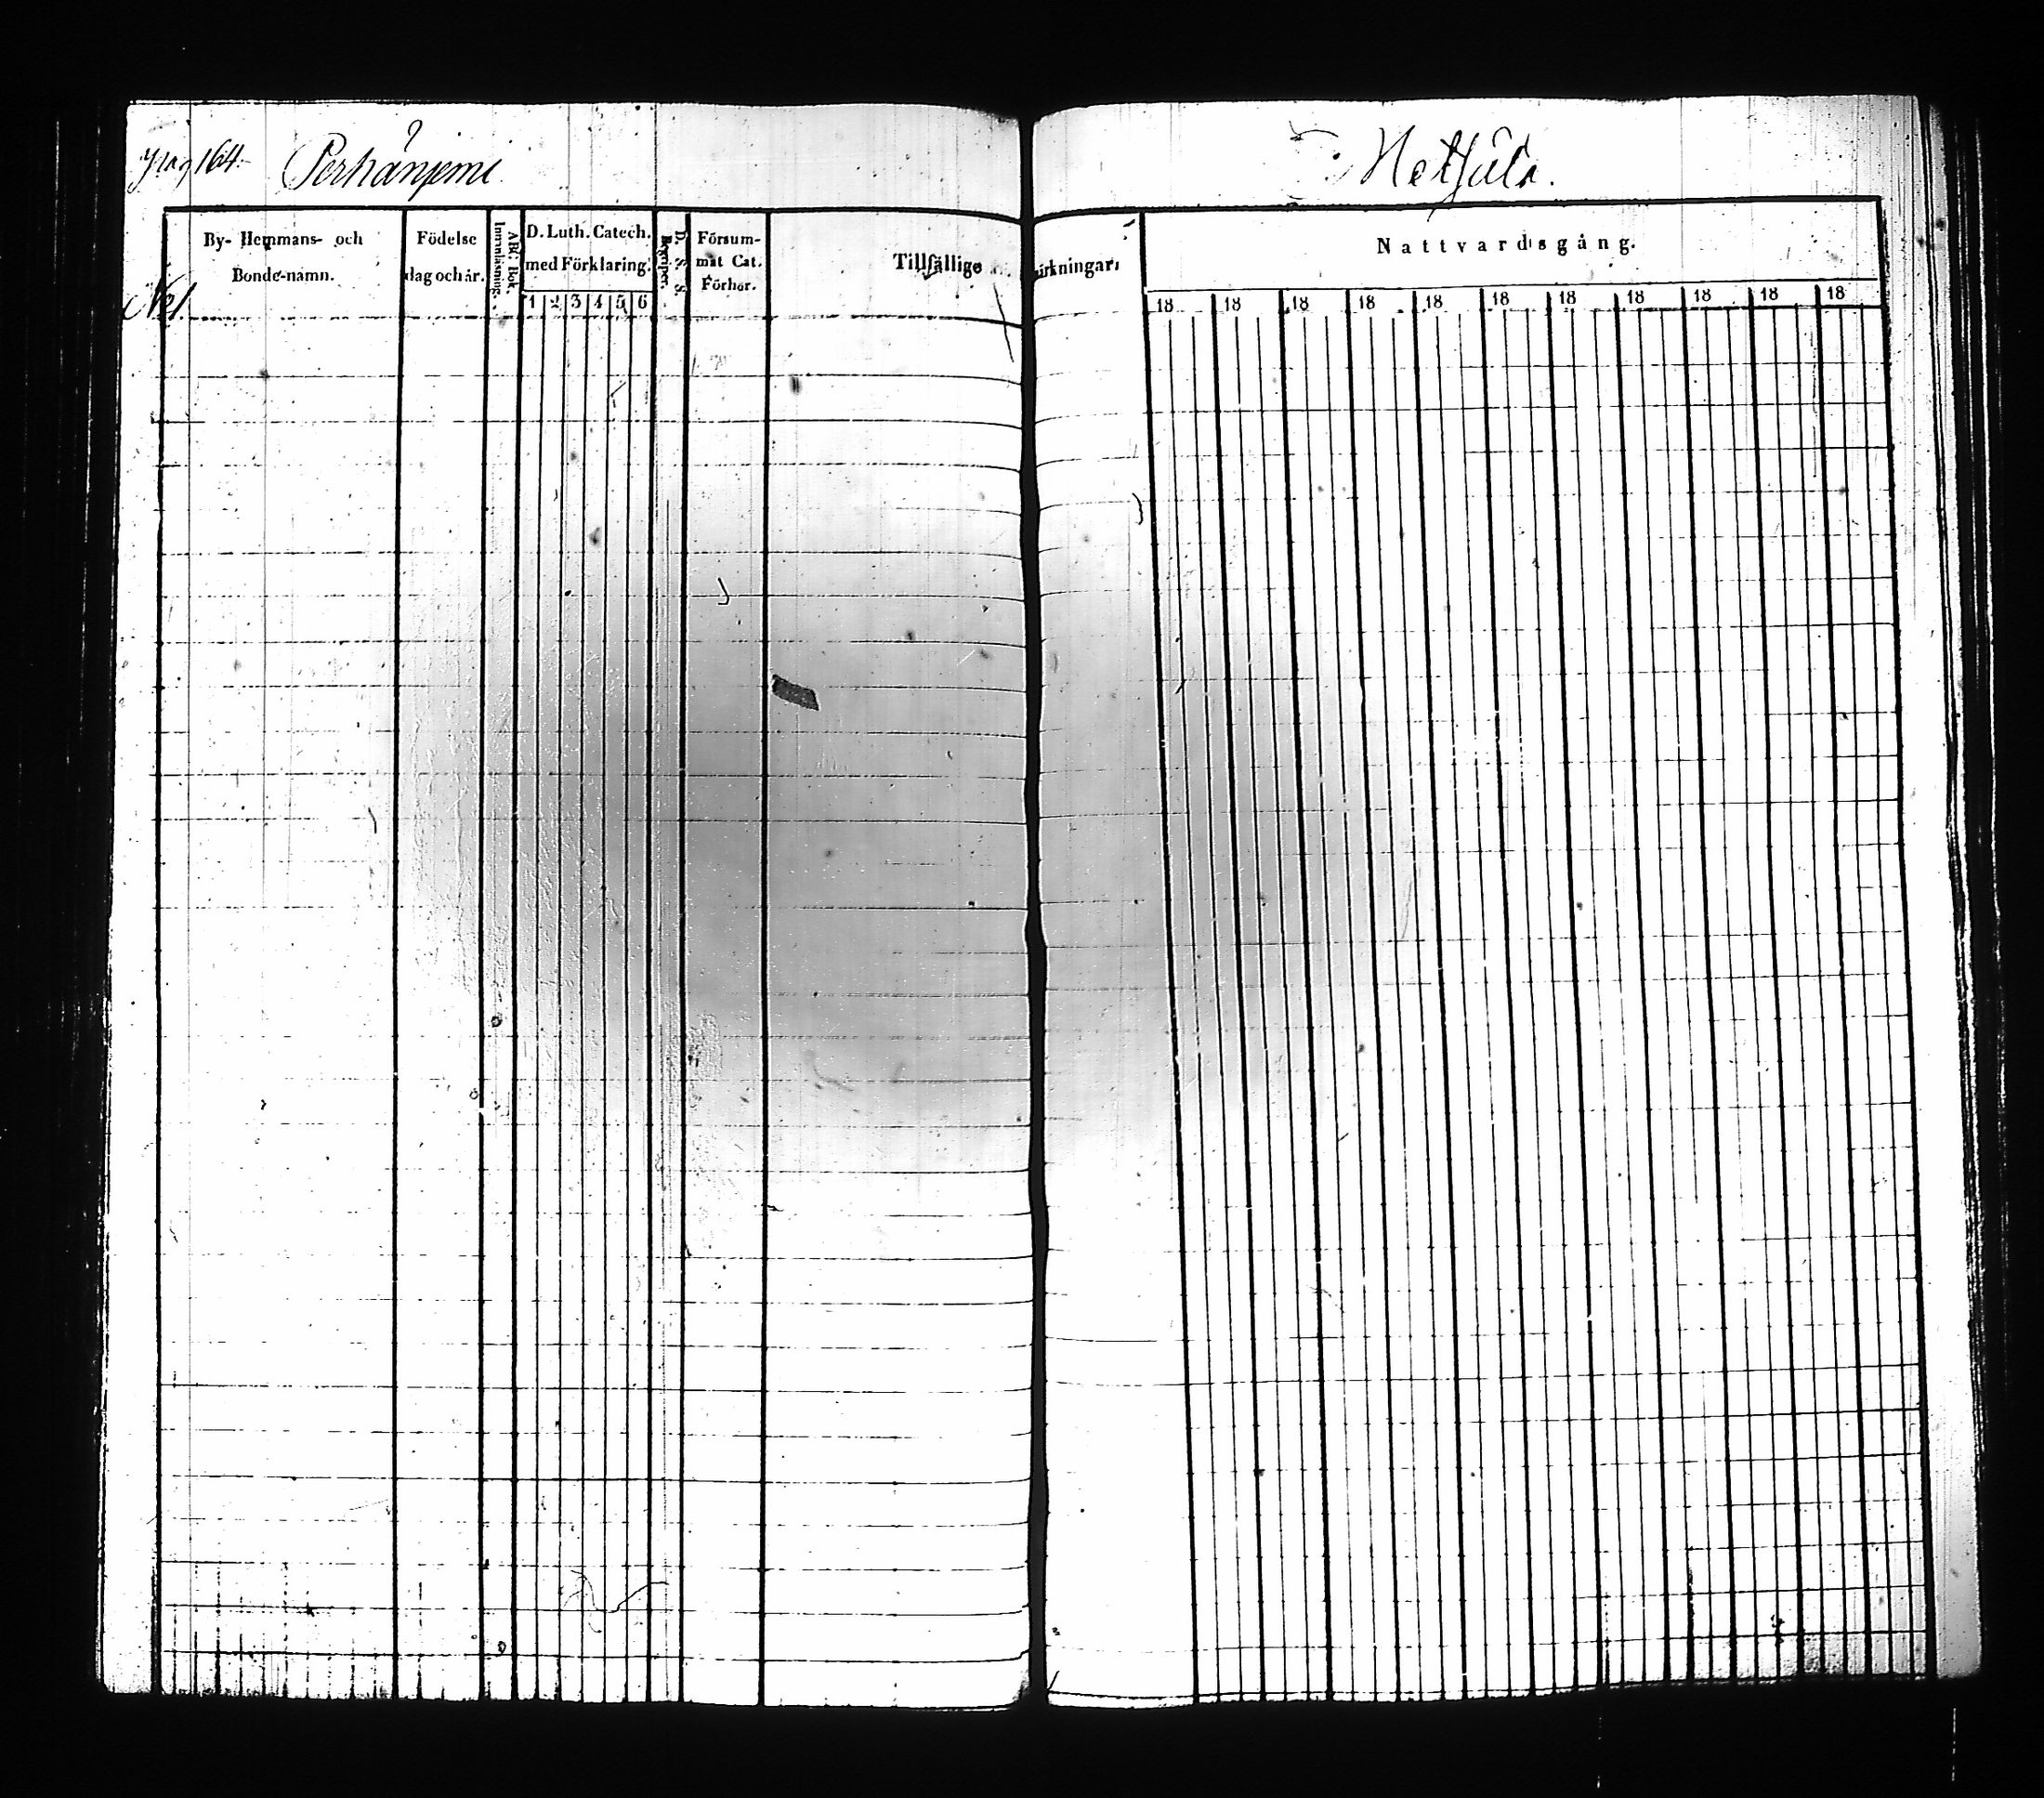 pag 164. Perhäniemi
By- Hemmans- och
Bonde-namn.
Födelse
dag och år.
AB C Bok.
Innanläsning.
D. Luth. Catech.
med Förklaring.
1 2 3 4 5 6
D. S. S.
Begriper.
Försum-
mat Cat.
Förhör.
Tillfällige
märkningar.
No 1.
Nattvardsgång.
18 18 18 18 18 18 18 18 18 18 18